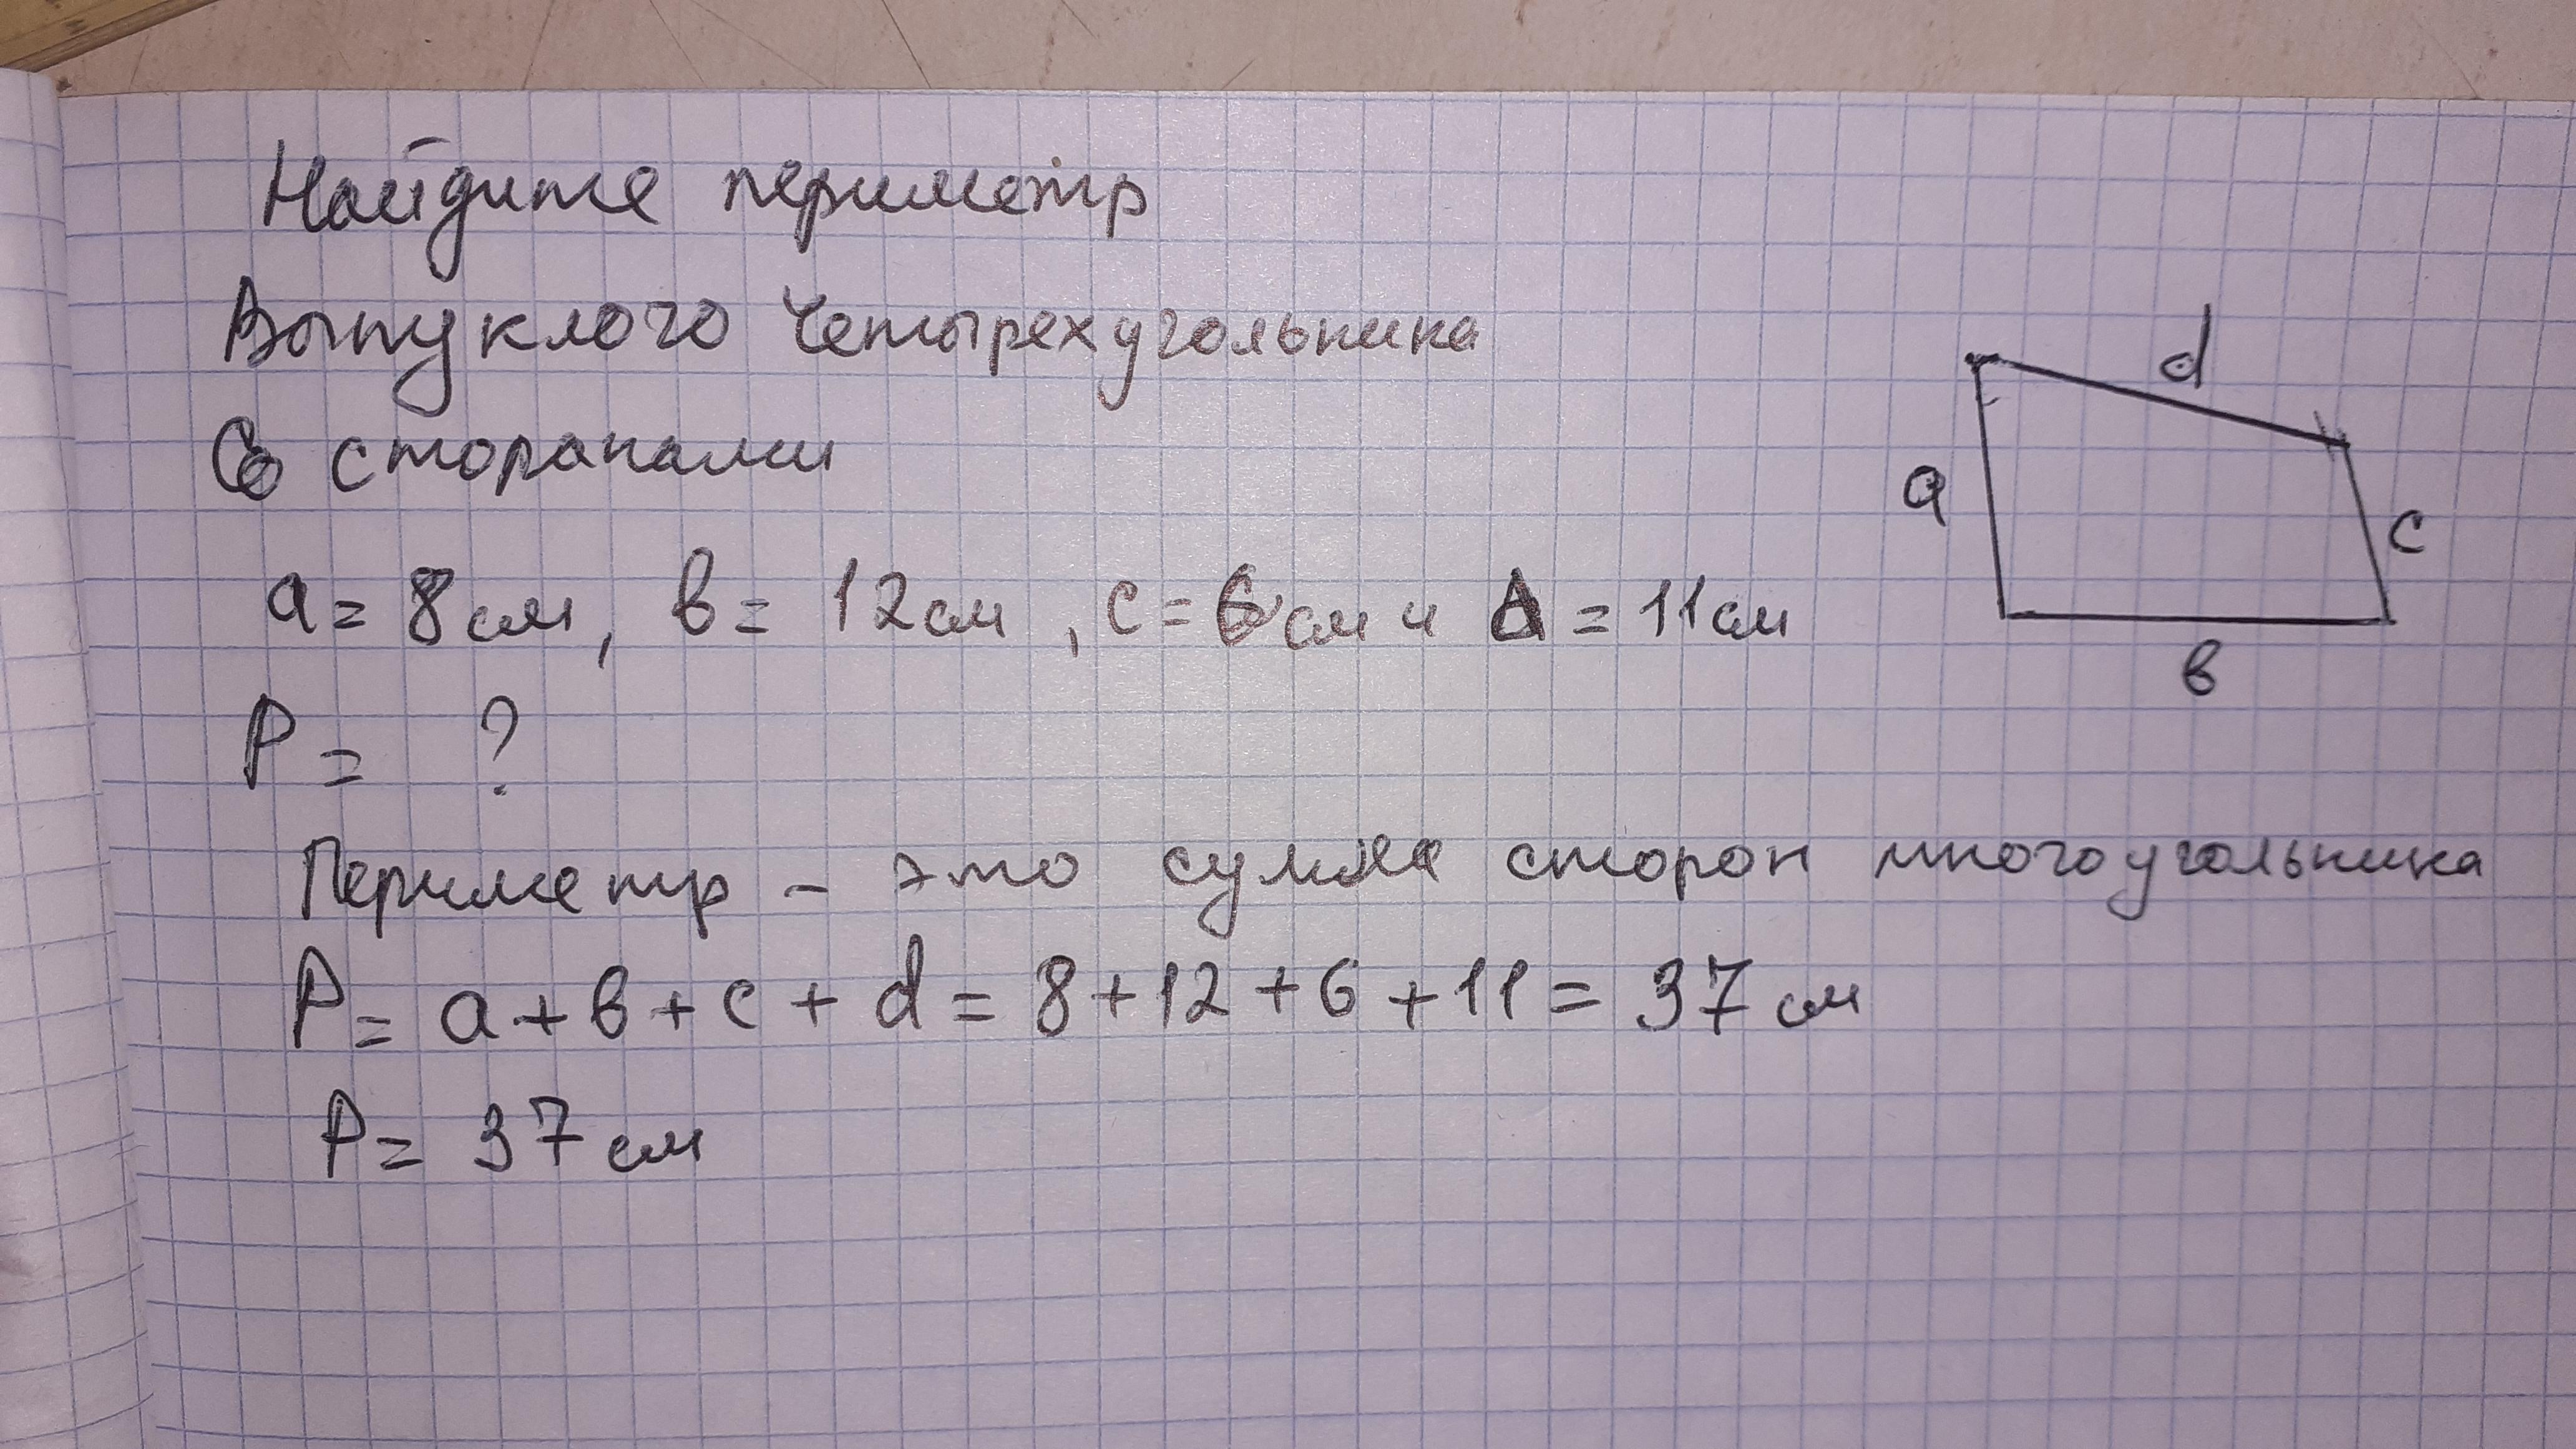 Найдите периметр
Выпуклого Четырехугольника
Со сторонами
a = 8 см, в = 12 см, c = 6 см и d = 11 см
P = ?
Периметр - это сумма сторон многоугольника
P = a + в + c + d = 8 + 12 + 6 + 11 = 37 см
P = 37 см
d
a
c
в